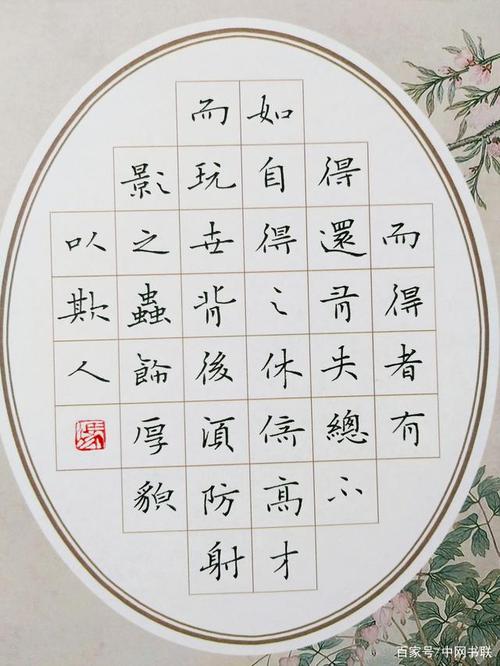 而得者有
得還失總不
如自得之休信高才
而玩世背後湏防射
影之蟲飾厚貌
以欺人
百家号/中网书联